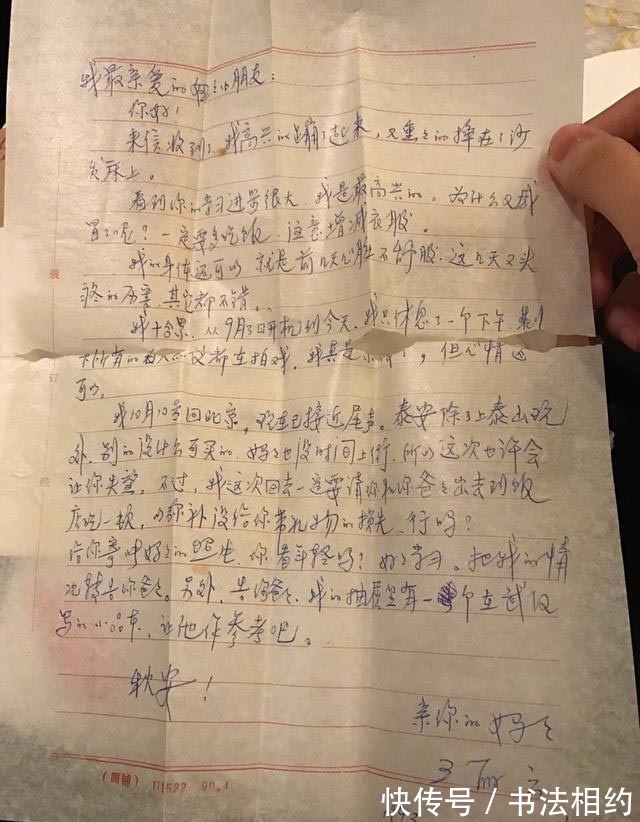 我最亲爱的小朋友：
你好！
来信收到，我高兴的蹦了起来，又重重的摔在了沙
发床上。
看到你的学习进步很大，我是最高兴的。为什么又感
冒了呢？一定要多吃饭，注意增减衣服。
我的身体还可以，就是前几天心脏不舒服，这几天又头
疼的厉害，其它都不错。
我十分累，从9月3日开机到今天，我只休息了一个下午，剩
下所有的都在拍戏，我真是，但心情还
可以。
我10月10号回北京，现在已接近尾声。泰安除了上泰山玩
外，别的没什么可买的，妈妈也没时间上街，所以这次也许会
让你失望。不过，我这次回去一定要请你和你爸爸出去到饭
店吃一顿，以弥补没给你带礼物的损失，行吗？
给你寄妈妈的照片，你看年轻吗？好好学习。把我的情
况转告你爸爸。另外，告诉爸爸，我的抽屉里有一个在武汉
写的小品本，让他作参考吧。
秋安！
亲你的妈妈
王丽云
1522 90.4
快传号 / 书法相约